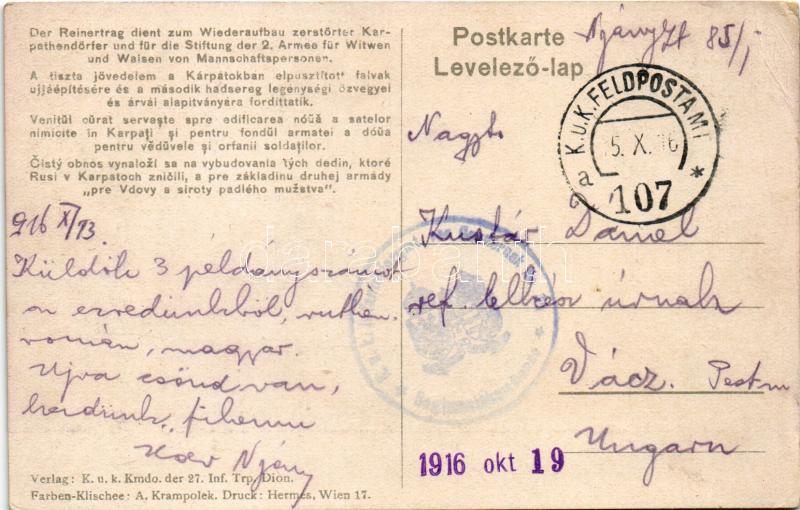 Der Reinertrag dient zum Wiederaufbau zerstörter Kar-
pathendörfer und für die Stiftung der 2. Armee für Witwen
und Waisen von Mannschaftspersonen.
A tiszta jövedelem a Kárpátokban elpusztitott falvak
ujjáépítésére és a második hadsereg legénységi özvegyei
és árvái alapitványára fordíttatik.
Venitŭl cŭrat servește spre edificarea nóŭă a satelor
nimicite în Karpați și pentru fondŭl armatei a dóŭa
pentru vĕdŭvele și orfanii soldaților.
Čistý obnos vynaloží sa na vybudovania tých dedin, ktoré
Rusi v Karpatoch zničili, a pre základinu druhej armády
„pre Vdovy a siroty padlého mužstva".
Postkarte
Levelező-lap
85/
K.u.K. FELDPOSTAMT
a
5. X. 16
107
*
Nagyt.
Kustár Dániel
ref. lelkész úrnak
Vácz. Pest m
Ungarn
916 XI/13.
Küldök 3 példányszámot
ezredünkből, ruthén,
román, magyar.
Ujra csönd van,
darabanth
1916 okt 19
Verlag: K. u. k. Kmdo. der 27. Inf. Trp. Dion.
Farben-Klischee: A. Krampolek. Druck: Hermes, Wien 17.